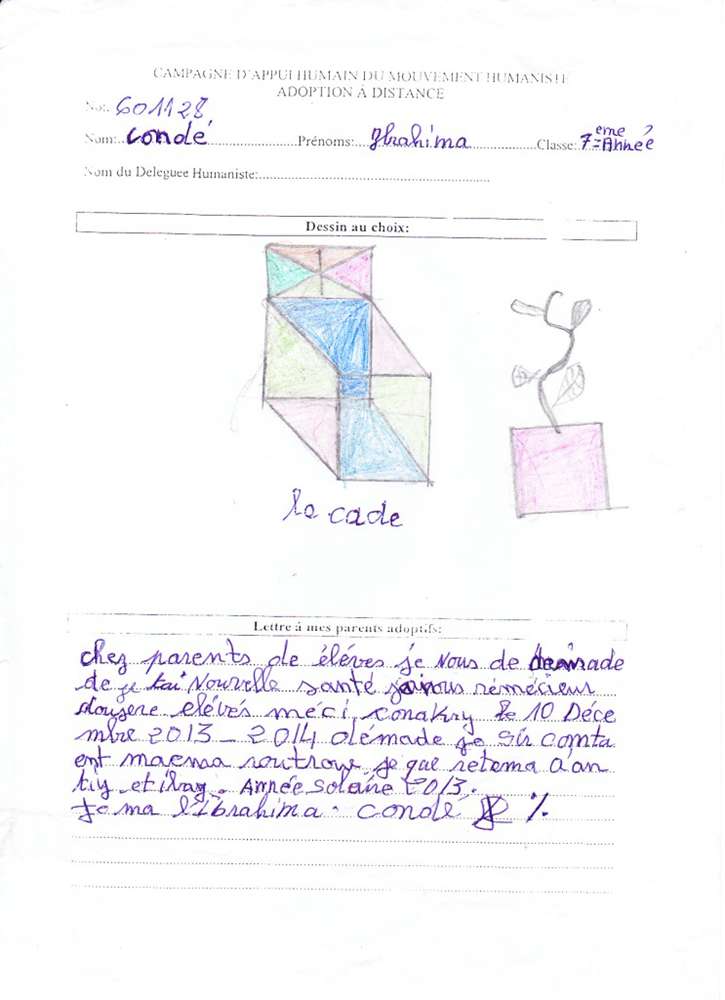 CAMPAGNE D'APPUI HUMAIN DU MOUVEMENT HUMANISTE
ADOPTION À DISTANCE
No:. 601128
Nom: Condé Prénoms: Ibrahima Classe: 7eme Année
Nom du Deleguee Humaniste:
Dessin au choix:
la cade
Lettre à mes parents adoptifs:
chez parents de élèves je Nous de
de je tai Nouvelle santé rémécieur
elévés méci, conakry le 10 Déce
mbre 2013 - 2014 démade je Sir comta
ent maema routrouve je que retema a an
tiy et ibray. Année Solaire 2013.
Je ma l'Ibrahima. Condé %